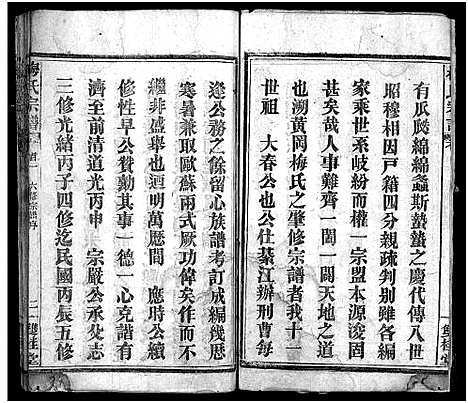 有瓜瓞綿綿螽斯蟄蟄之慶代傳八世
昭穆相因戶籍四分親疎判別雖各編
家乘世系岐紛而權一宗盟本源浚固
甚矣哉人事難齊一闔一闢天地之道
也溯黃岡梅氏之肇修宗譜者我十一
世祖 大春公也公仕綦江辦刑曹每
雙桂堂
逢公務之餘留心族譜考訂成編幾歷
寒暑兼取歐蘇兩式厥功偉矣于時公
繼非盛舉也迴明萬厯間 應時公續
修性早公賛勷其事一德一心克諧有
濟至前清道光丙申 宗嚴公承父志
三修光緒丙子四修迄民國丙辰五修
梅氏宗譜 首一 六修宗譜序 二 雙桂堂